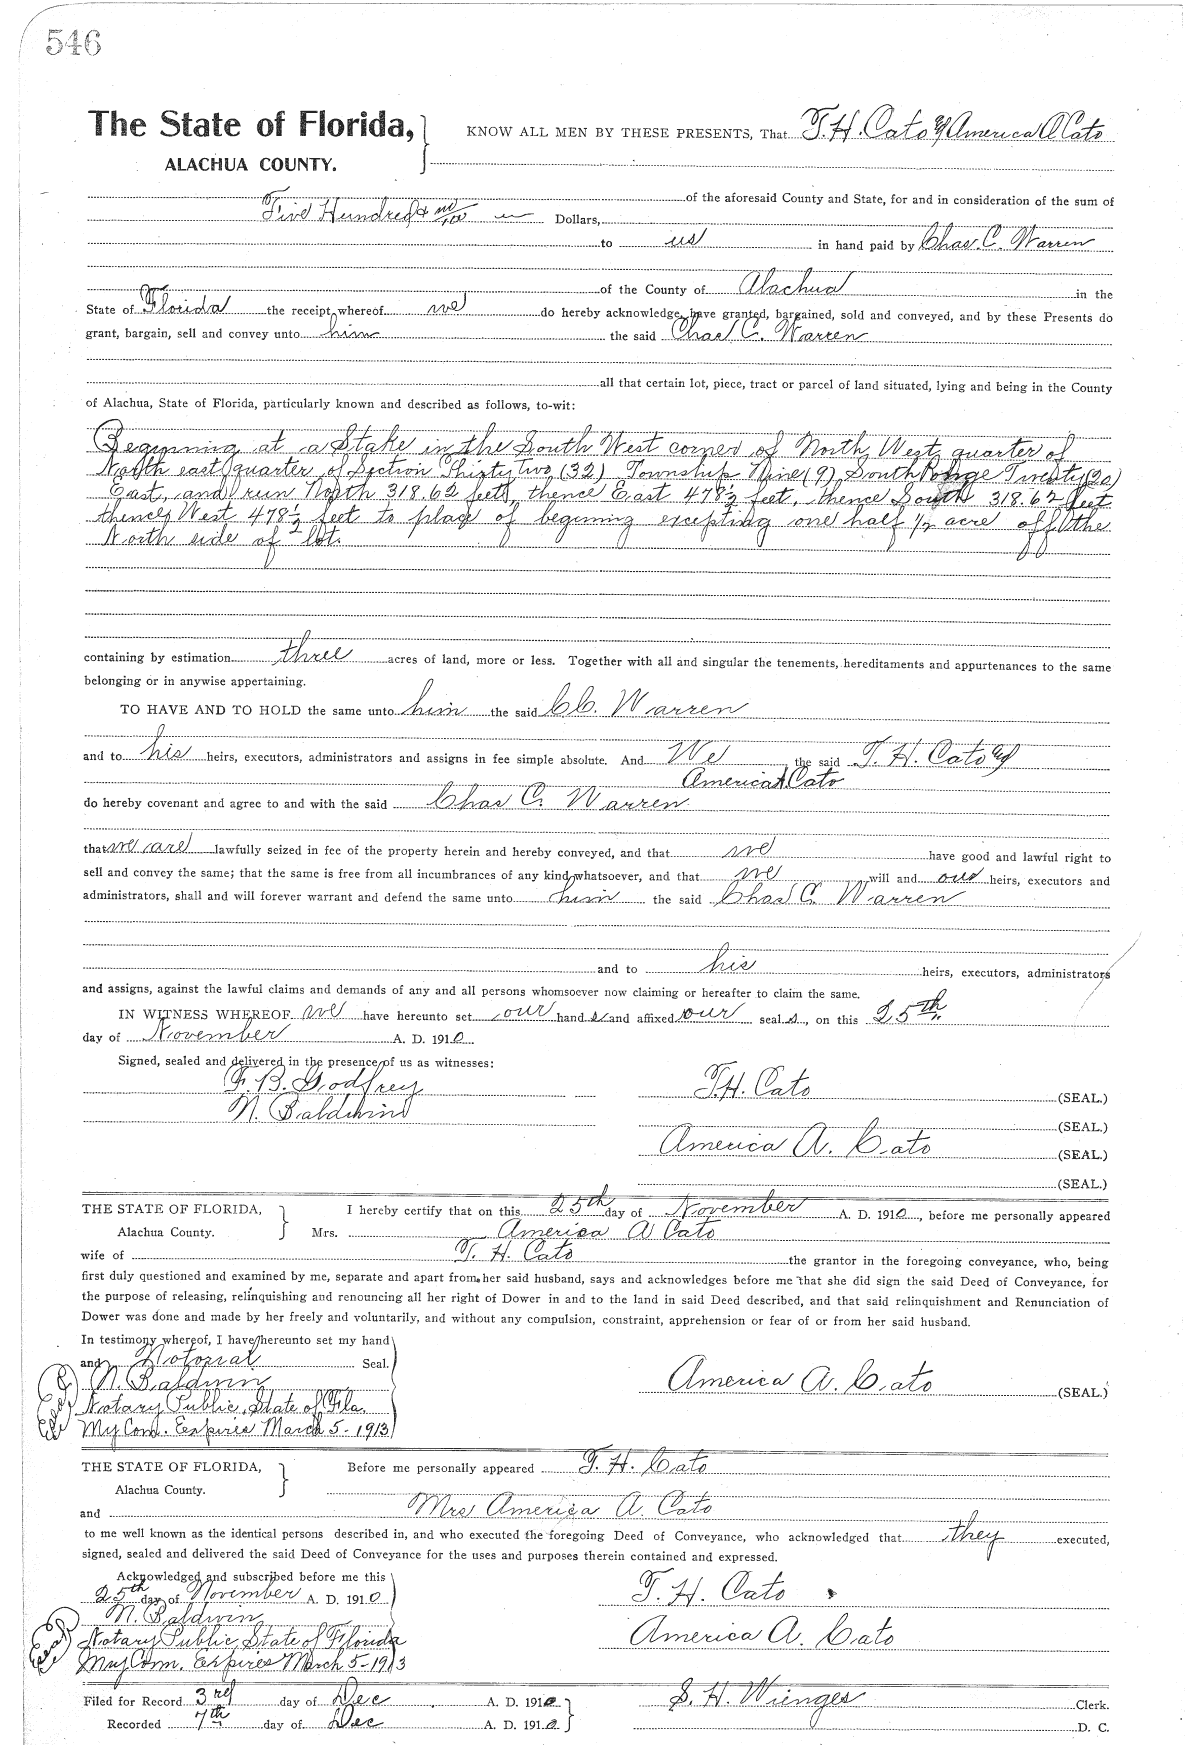 546
The State of Florida, KNOW ALL MEN BY THESE PRESENTS, That T. H. Cato & America A Cato
ALACHUA COUNTY.
of the aforesaid County and State, for and in consideration of the sum of
Five Hundred & no/100 Dollars,
to us in hand paid by Chas. C. Warren
of the County of Alachua in the
State of Florida the receipt whereof we do hereby acknowledge, have granted, bargained, sold and conveyed, and by these Presents do
grant, bargain, sell and convey unto him the said Chas C. Warren
all that certain lot, piece, tract or parcel of land situated, lying and being in the County
of Alachua, State of Florida, particularly known and described as follows, to-wit:
Beginning at a Stake in the South West corner of North West quarter of
North east quarter of Section Thirty two (32) Township Nine (9) South Range Twenty (20)
East, and run North 318.62 feet, thence East 478½ feet, thence South 318.62 feet
thence West 478½ feet to place of beginning excepting one half ½ acre off the
North side of lot.
containing by estimation three acres of land, more or less. Together with all and singular the tenements, hereditaments and appurtenances to the same
belonging or in anywise appertaining.
TO HAVE AND TO HOLD the same unto him the said C.C. Warren
and to his heirs, executors, administrators and assigns in fee simple absolute. And We the said T. H. Cato and
America A Cato
do hereby covenant and agree to and with the said Chas C. Warren
that we are lawfully seized in fee of the property herein and hereby conveyed, and that we have good and lawful right to
sell and convey the same; that the same is free from all incumbrances of any kind whatsoever, and that we will and our heirs, executors and
administrators, shall and will forever warrant and defend the same unto him the said Chas C. Warren
and to his heirs, executors, administrators
and assigns, against the lawful claims and demands of any and all persons whomsoever now claiming or hereafter to claim the same.
IN WITNESS WHEREOF we have hereunto set our hands and affixed our seals, on this 25th
day of November A. D. 1910.
Signed, sealed and delivered in the presence of us as witnesses:
F. B. Godfrey T.H. Cato (SEAL.)
N. Baldwin (SEAL.)
America A. Cato (SEAL.)
(SEAL.)
THE STATE OF FLORIDA, I hereby certify that on this 25th day of November A. D. 1910, before me personally appeared
Alachua County. Mrs. America A Cato
wife of T. H. Cato the grantor in the foregoing conveyance, who, being
first duly questioned and examined by me, separate and apart from her said husband, says and acknowledges before me that she did sign the said Deed of Conveyance, for
the purpose of releasing, relinquishing and renouncing all her right of Dower in and to the land in said Deed described, and that said relinquishment and Renunciation of
Dower was done and made by her freely and voluntarily, and without any compulsion, constraint, apprehension or fear of or from her said husband.
In testimony whereof, I have hereunto set my hand
and Notorial Seal.
N. Baldwin America A. Cato (SEAL.)
Notary Public, State of Fla.
My Com. Expires March 5-1913
THE STATE OF FLORIDA, Before me personally appeared T. H. Cato
Alachua County.
and Mrs America A. Cato
to me well known as the identical persons described in, and who executed the foregoing Deed of Conveyance, who acknowledged that they executed,
signed, sealed and delivered the said Deed of Conveyance for the uses and purposes therein contained and expressed.
Acknowledged and subscribed before me this
25th day of November A. D. 1910 T. H. Cato
N. Baldwin
Notary Public, State of Florida America A. Cato
My Com. Expires March 5-1913
Filed for Record 3rd day of Dec A. D. 1910 S. H. Wienges Clerk.
Recorded 7th day of Dec A. D. 1910 D. C.